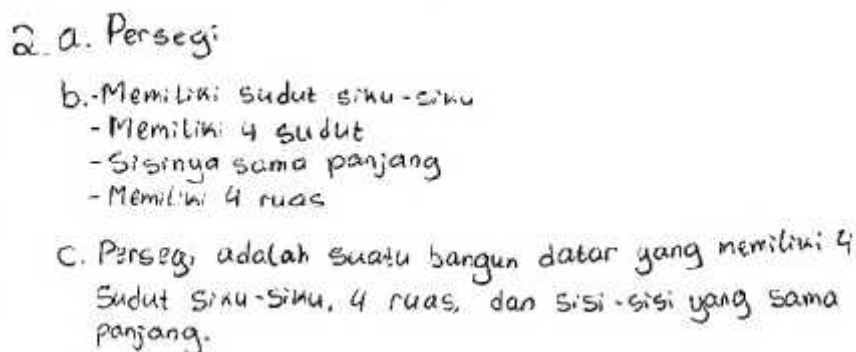 2. a. Persegi
b. - Memiliki sudut siku-siku
- Memiliki 4 sudut
- Sisinya sama panjang
- Memiliki 4 ruas
c. Persegi adalah suatu bangun datar yang memiliki 4
sudut siku-siku, 4 ruas, dan sisi-sisi yang sama
panjang.